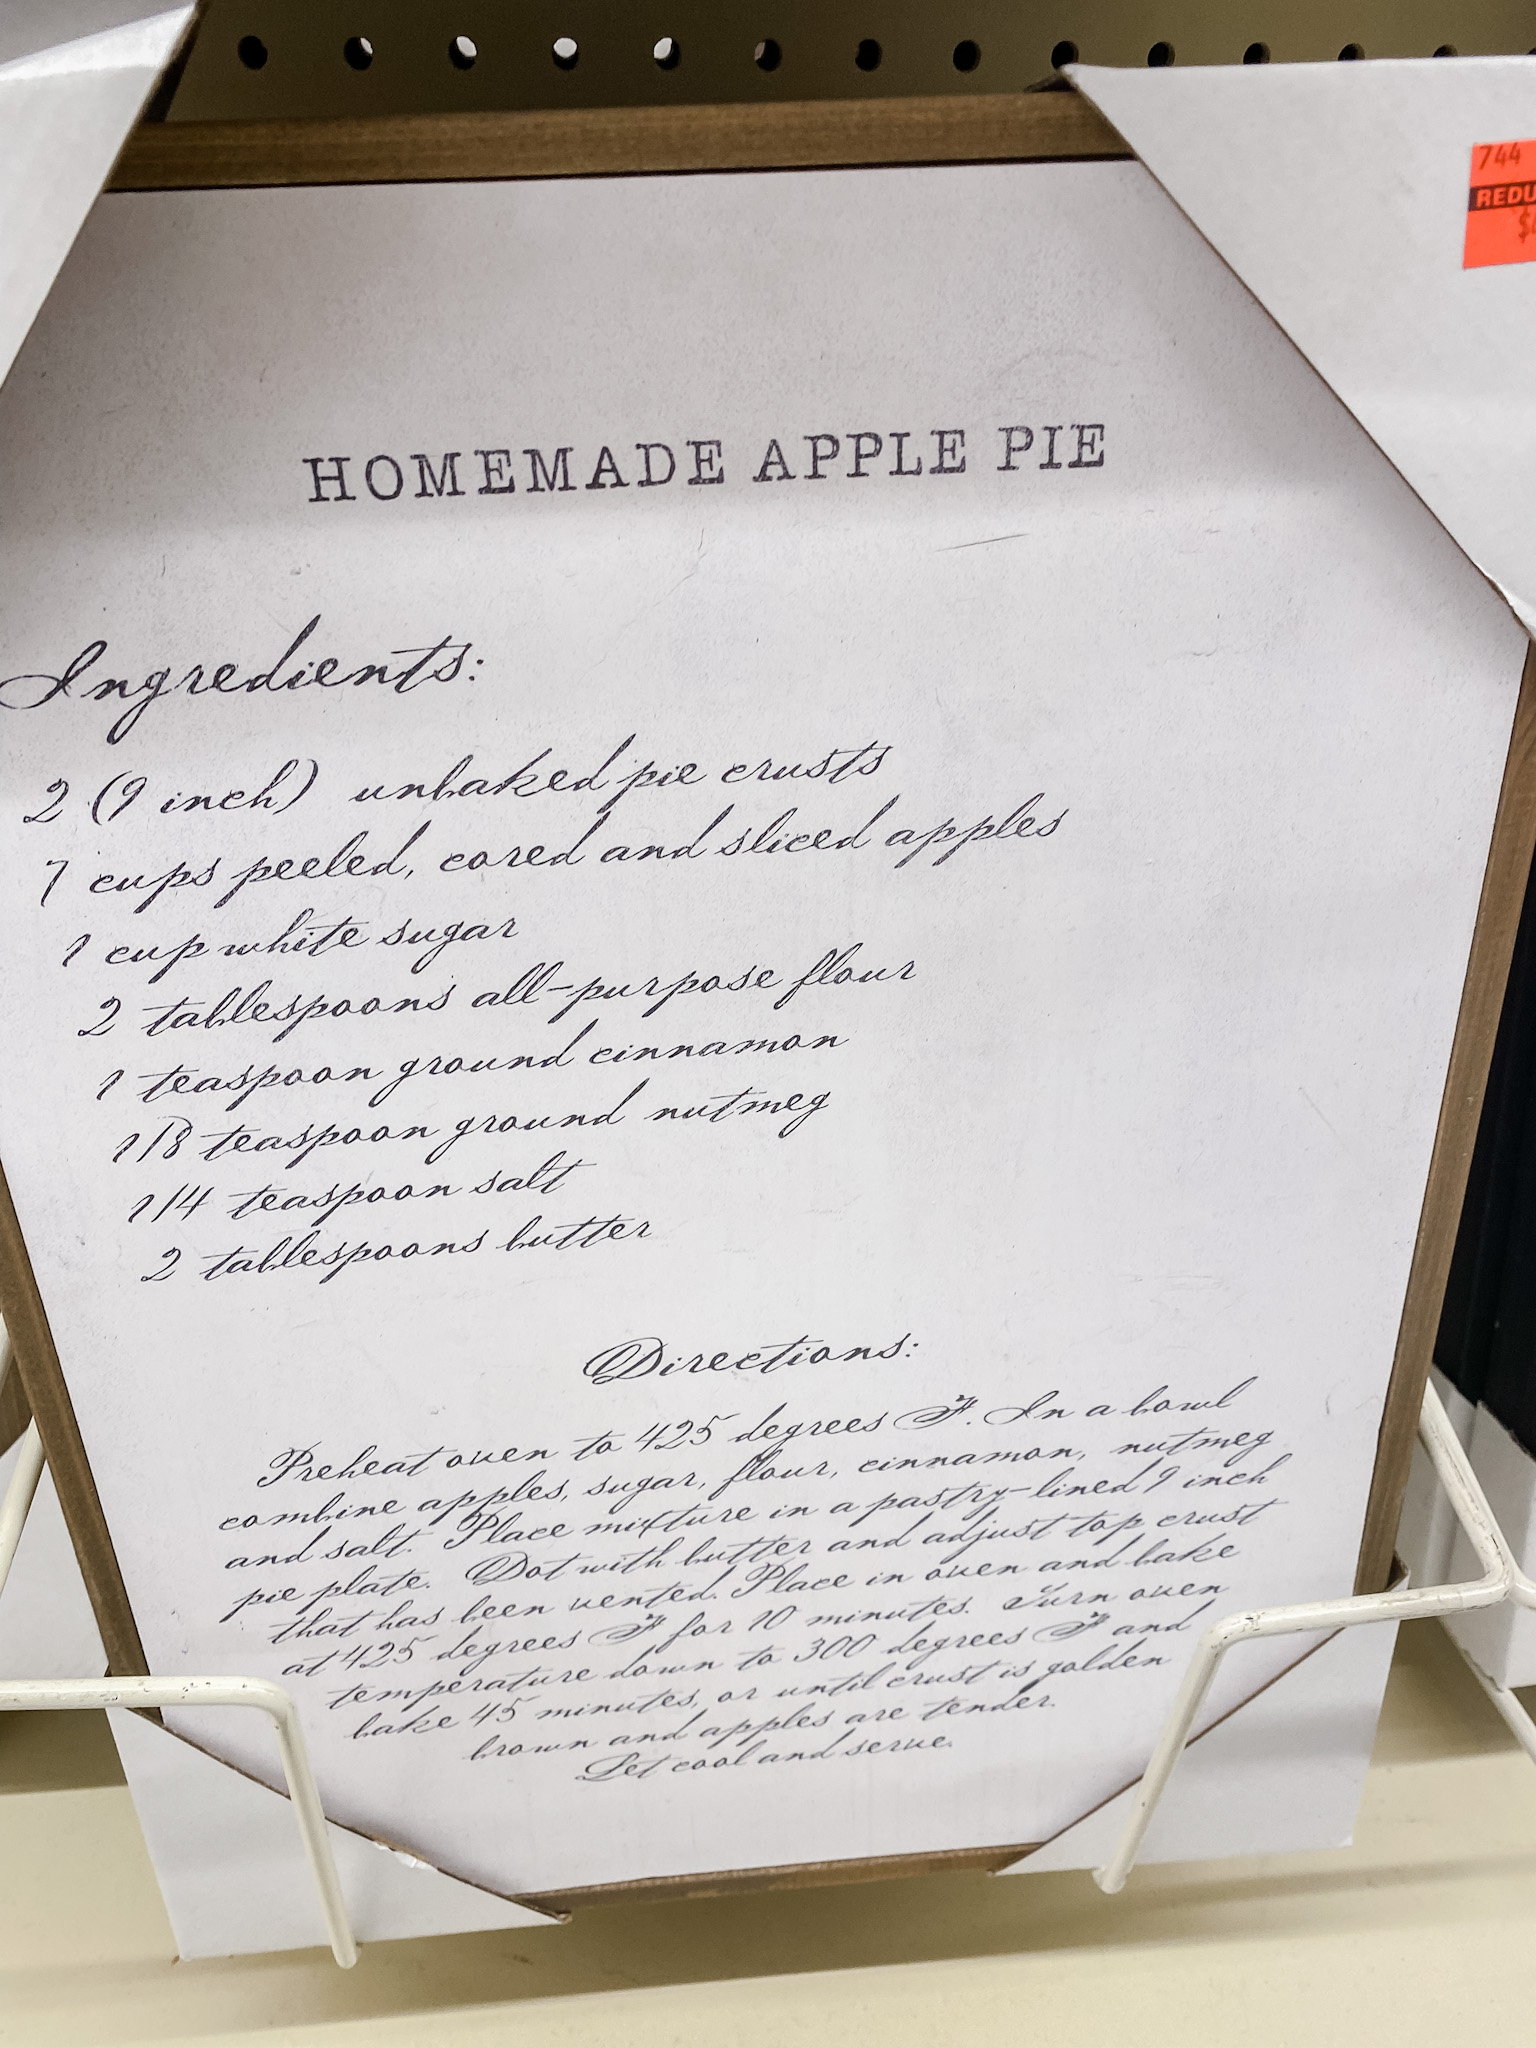 744
REDU
HOMEMADE APPLE PIE
Ingredients:
2 (9 inch) unbaked pie crusts
7 cups peeled, cored and sliced apples
1 cup white sugar
2 tablespoons all-purpose flour
1 teaspoon ground cinnamon
1/8 teaspoon ground nutmeg
1/4 teaspoon salt
2 tablespoons butter
Directions:
Preheat oven to 425 degrees F. In a bowl
combine apples, sugar, flour, cinnamon, nutmeg
and salt. Place mixture in a pastry-lined 9 inch
pie plate. Dot with butter and adjust top crust
that has been vented. Place in oven and bake
at 425 degrees F for 10 minutes. Turn oven
temperature down to 300 degrees F and
bake 45 minutes, or until crust is golden
brown and apples are tender.
Let cool and serve.